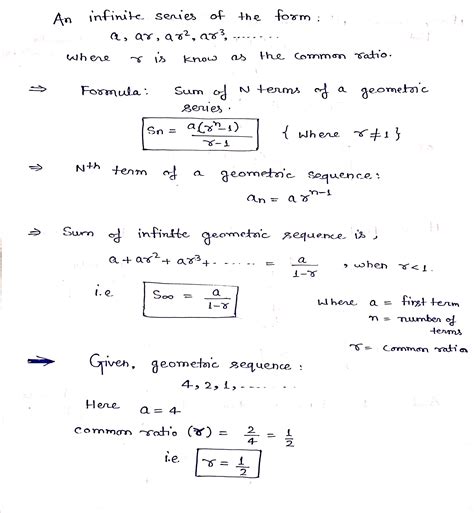 An infinite series of the form:
a, ar, ar², ar³, ........
where r is know as the common ratio.
⇒ Formula: Sum of N terms of a geometric
series.
Sn = a(rⁿ-1) / r-1 { where r≠1 }
⇒ Nth term of a geometric sequence:
an = ar^(n-1)
⇒ Sum of infinite geometric sequence is,
a + ar² + ar³ + ...... = a / 1-r , when r<1.
i.e S∞ = a / 1-r
where a = first term
n = number of
terms
r = common ratio
→ Given, geometric sequence:
4, 2, 1, ......
Here a = 4
common ratio (r) = 2/4 = 1/2
i.e. r = 1/2